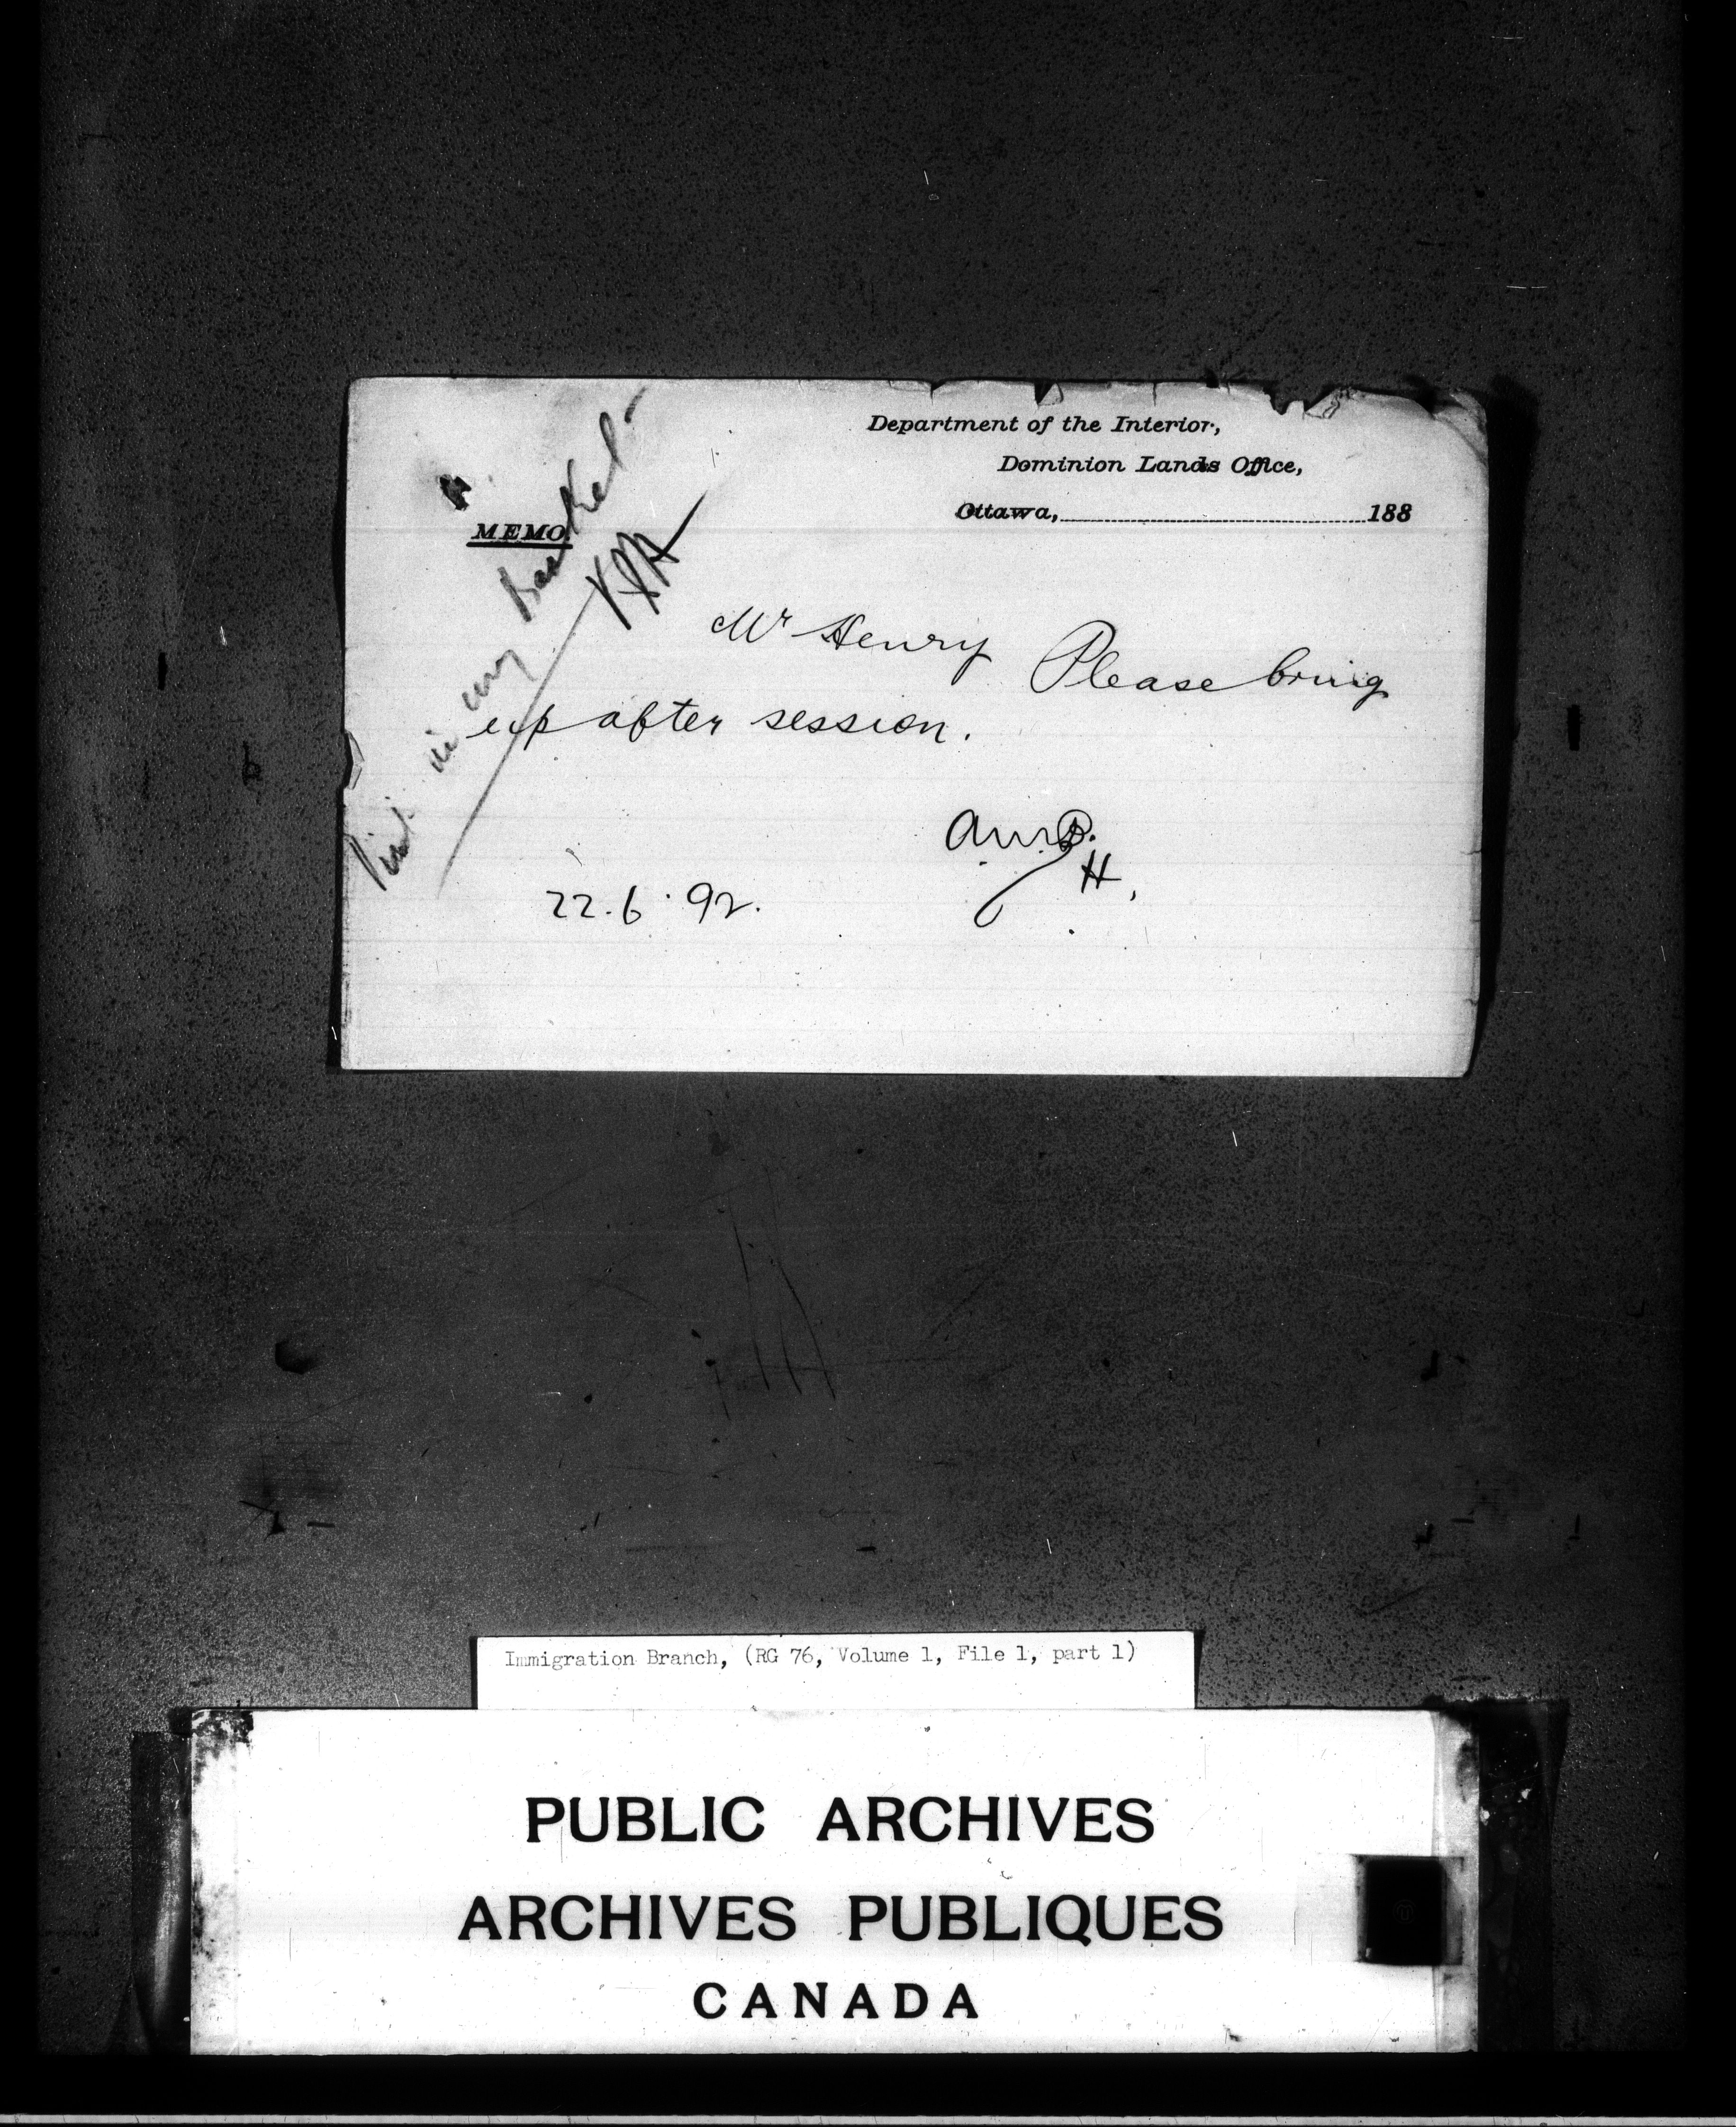 Department of the Interior,
Dominion Lands Office,
Ottawa, 188
MEMO.
in my Basket
Mr Henry Please bring
up after session.
H.
22.6.92.
Immigration Branch, (RG 76, Volume 1, File 1, part 1)
PUBLIC ARCHIVES
ARCHIVES PUBLIQUES
CANADA